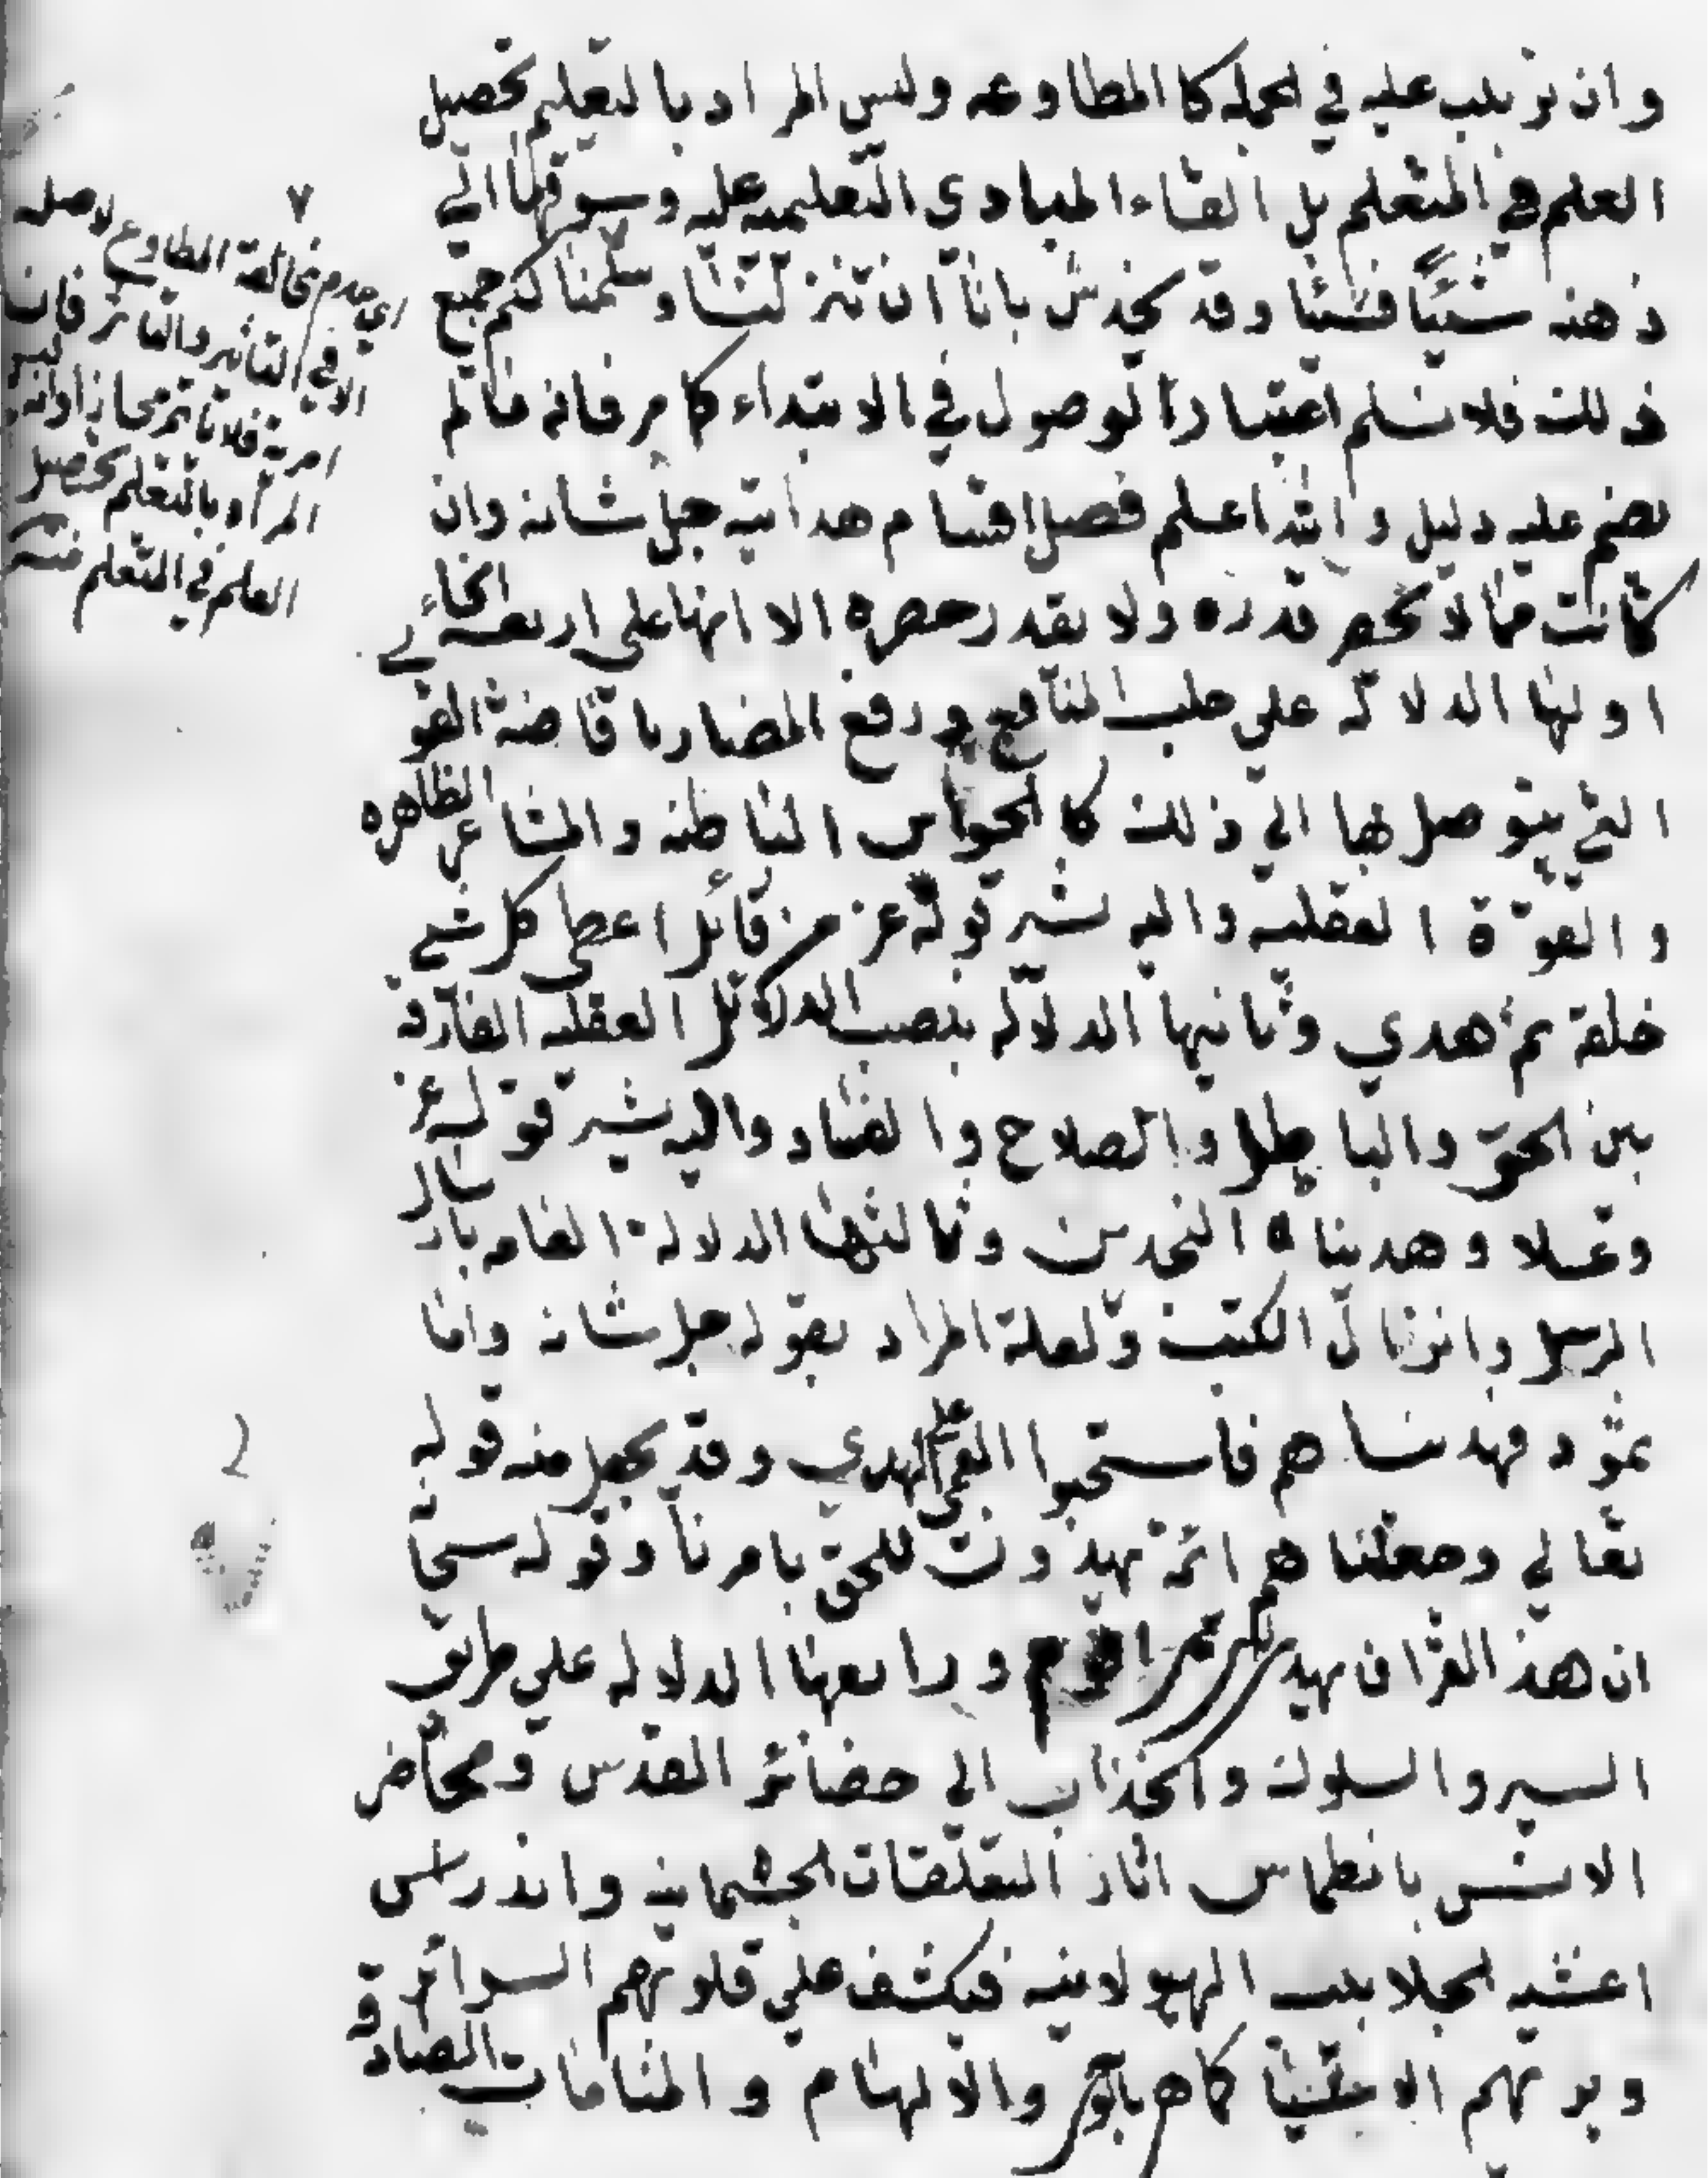 وان ترتب عليه في الجملة كالمطاوعه وليس المراد بالتعليم تحصيل
العلم في المتعلم بل القاء المبادي التعليميه عليه وسوقها الي
ذهنه شيئا فشيئا وقد يخدش بانا ان تنزلنا وسلمنا لكم جميع
ذلك فلا نسلم اعتبار الوصول في الابتداء كما مر فانه مما لم
يقم عليه دليل والله اعلم فصل اقسام هدايته جل شانه وان
كانت مما لا يحصر قدره ولا يقدر حصره الا انها علي اربعة انحاء
اولها الدلالة علي جلب المنافع ودفع المضار بافاضة القوي
التي يتوصل بها الي ذلك كالحواس الباطنه والمشاعر الظاهره
والقوة العقليه واليه يشير قوله عز من قائل اعطي كل شي
خلقه ثم هدي وثانيها الدلالة بنصب الدلائل العقليه الفارقة
بين الحق والباطل والصلاح والفساد واليه يشير قوله عز
وعلا وهديناه النجدين وثالثها الدلالة العامه بارسال
الرسل وانزال الكتب ولعله المراد بقوله جل شانه واما
ثمود فهديناهم فاستحبوا العمي علي الهدي وقد يجعل منه قوله
تعالي وجعلناهم ائمة يهدون للحق بامرنا وقوله سبحا
ان هذا القران يهدي للتي هي اقوم ورابعها الدلاله علي طريق
السير والسلوك وانجذاب الي حضائر القدس ومحاضر
الانس بانطماس اثار التعلقات الجسمانيه واندراس
اغشيه الجلابيب الهيولانيه فيكشف علي قلوبهم السرائر و
يريهم الاشيا كما هي بالوحي والالهام والمنامات الصادقة
اي عدم مخالفة المطاوع لاصله
الا في التاثير والتاثر فان
المراد بالتعلم تحصيل
العلم في المتعلم منه